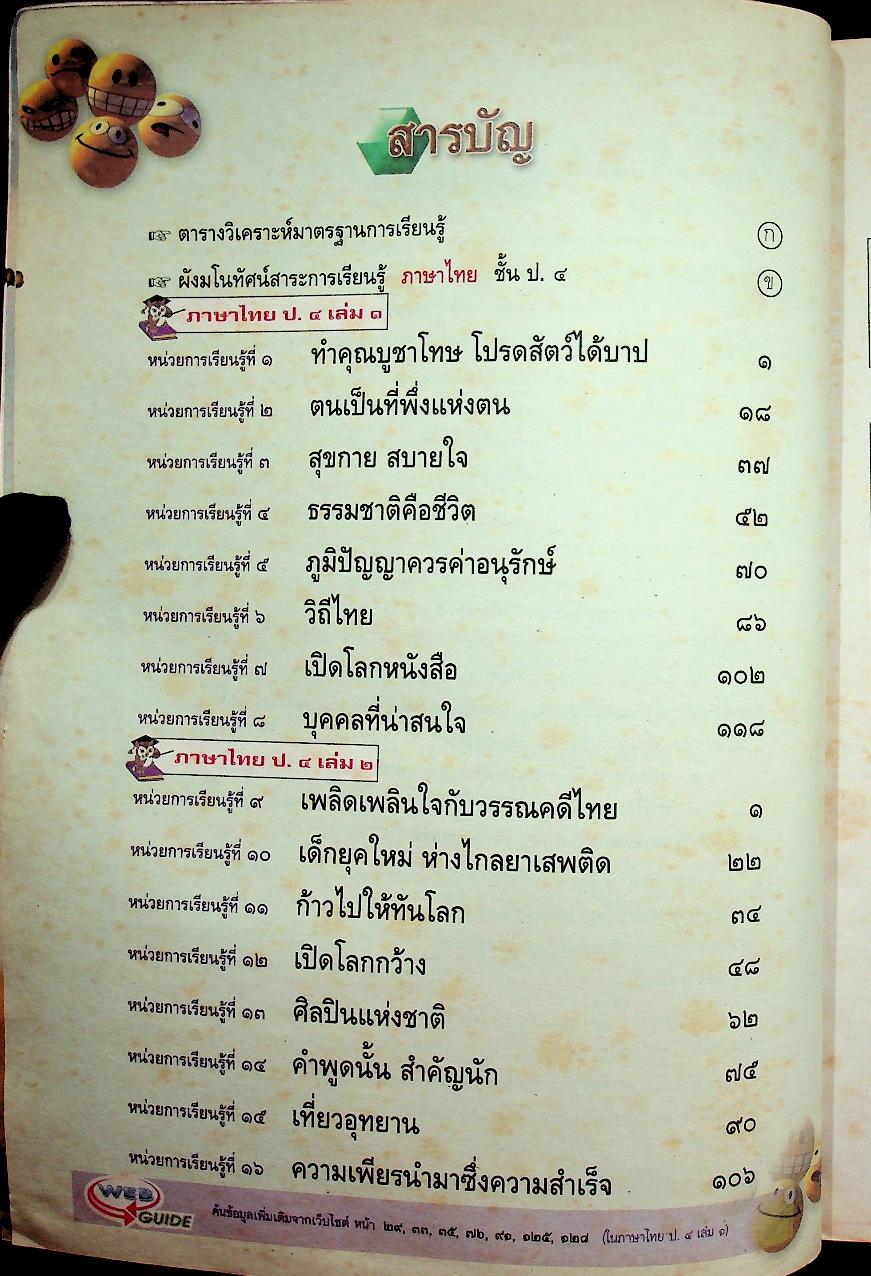 สารบัญ
☞ ตารางวิเคราะห์มาตรฐานการเรียนรู้ ก
☞ ผังมโนทัศน์สาระการเรียนรู้ ภาษาไทย ชั้น ป. ๔ ข
ภาษาไทย ป. ๔ เล่ม ๑
หน่วยการเรียนรู้ที่ ๑ ทำคุณบูชาโทษ โปรดสัตว์ได้บาป ๑
หน่วยการเรียนรู้ที่ ๒ ตนเป็นที่พึ่งแห่งตน ๑๘
หน่วยการเรียนรู้ที่ ๓ สุขกาย สบายใจ ๓๗
หน่วยการเรียนรู้ที่ ๔ ธรรมชาติคือชีวิต ๕๒
หน่วยการเรียนรู้ที่ ๕ ภูมิปัญญาควรค่าอนุรักษ์ ๗๐
หน่วยการเรียนรู้ที่ ๖ วิถีไทย ๘๖
หน่วยการเรียนรู้ที่ ๗ เปิดโลกหนังสือ ๑๐๒
หน่วยการเรียนรู้ที่ ๘ บุคคลที่น่าสนใจ ๑๑๘
ภาษาไทย ป. ๔ เล่ม ๒
หน่วยการเรียนรู้ที่ ๙ เพลิดเพลินใจกับวรรณคดีไทย ๑
หน่วยการเรียนรู้ที่ ๑๐ เด็กยุคใหม่ ห่างไกลยาเสพติด ๒๒
หน่วยการเรียนรู้ที่ ๑๑ ก้าวไปให้ทันโลก ๓๔
หน่วยการเรียนรู้ที่ ๑๒ เปิดโลกกว้าง ๔๘
หน่วยการเรียนรู้ที่ ๑๓ ศิลปินแห่งชาติ ๖๒
หน่วยการเรียนรู้ที่ ๑๔ คำพูดนั้น สำคัญนัก ๗๕
หน่วยการเรียนรู้ที่ ๑๕ เที่ยวอุทยาน ๙๐
หน่วยการเรียนรู้ที่ ๑๖ ความเพียรนำมาซึ่งความสำเร็จ ๑๐๖
WEB GUIDE ค้นข้อมูลเพิ่มเติมจากเว็บไซต์ หน้า ๒๙, ๓๓, ๓๕, ๗๖, ๙๑, ๑๒๕, ๑๒๘ (ในภาษาไทย ป. ๔ เล่ม ๑)